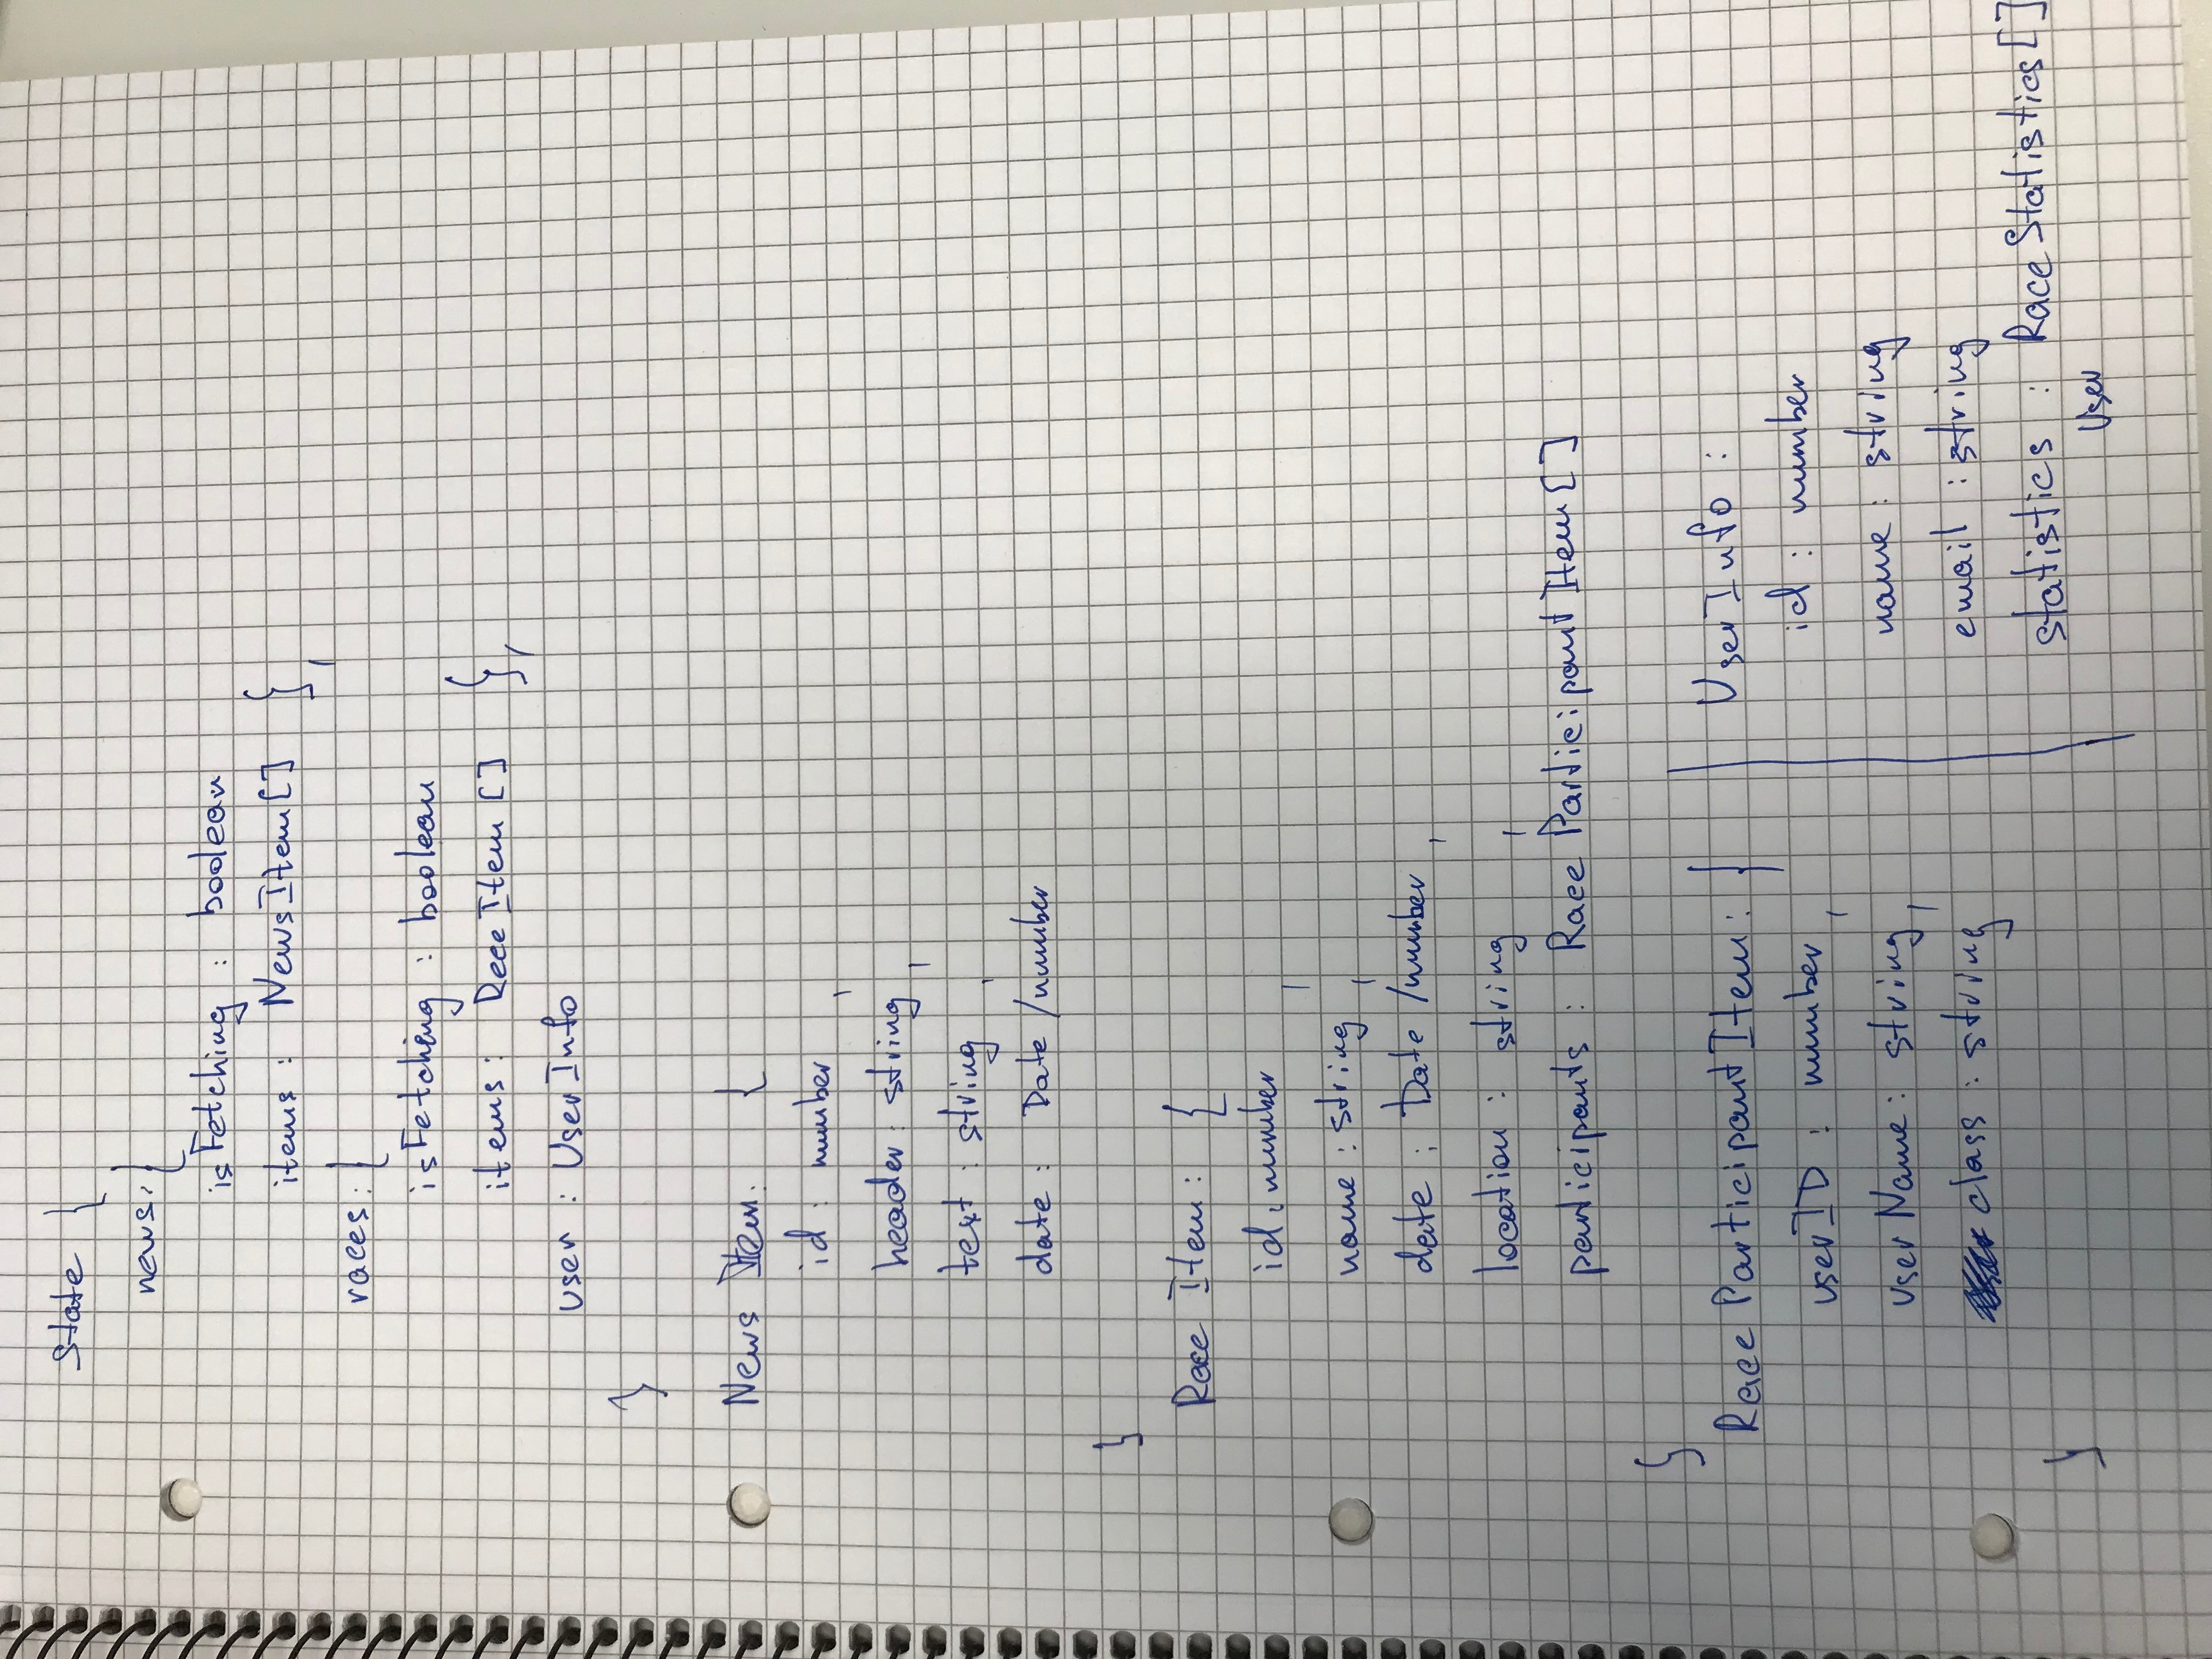 state {
news: {
isFetching : boolean
items : NewsItem[] },
races: {
isFetching : boolean
items : RaceItem[] },
user : UserInfo
}
News Item: {
id : number ,
header : string ,
text : string ,
date : Date /number
}
Race Item : {
id : number ,
name : string ,
date : Date /number ,
location : string ,
participants : Race ParticipantItem[]
}
Race ParticipantItem: {
userID : number ,
userName : string ,
class : string
}
UserInfo :
id : number
name : string
email : string
statistics : RaceStatistics[]
User